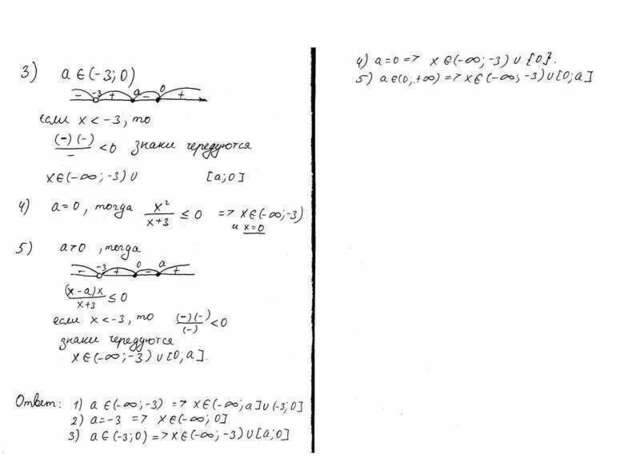 3) a ∈ (-3; 0)
- -3 + a - 0 +
если x < -3, то
(-)(-)/- < 0 знаки чередуются
x ∈ (-∞; -3) ∪ [a; 0]
4) a = 0, тогда x²/(x+3) ≤ 0 => x ∈ (-∞; -3)
и x = 0
5) a > 0, тогда
- -3 + 0 - a +
(x-a)x/(x+3) ≤ 0
если x < -3, то (-)(-)/(-) < 0
знаки чередуются
x ∈ (-∞; -3) ∪ [0, a].
Ответ: 1) a ∈ (-∞; -3) => x ∈ (-∞; a] ∪ (-3; 0]
2) a = -3 => x ∈ (-∞; 0]
3) a ∈ (-3; 0) => x ∈ (-∞; -3) ∪ [a; 0]
4) a = 0 => x ∈ (-∞; -3) ∪ {0}.
5) a ∈ (0, +∞) => x ∈ (-∞; -3) ∪ [0; a]